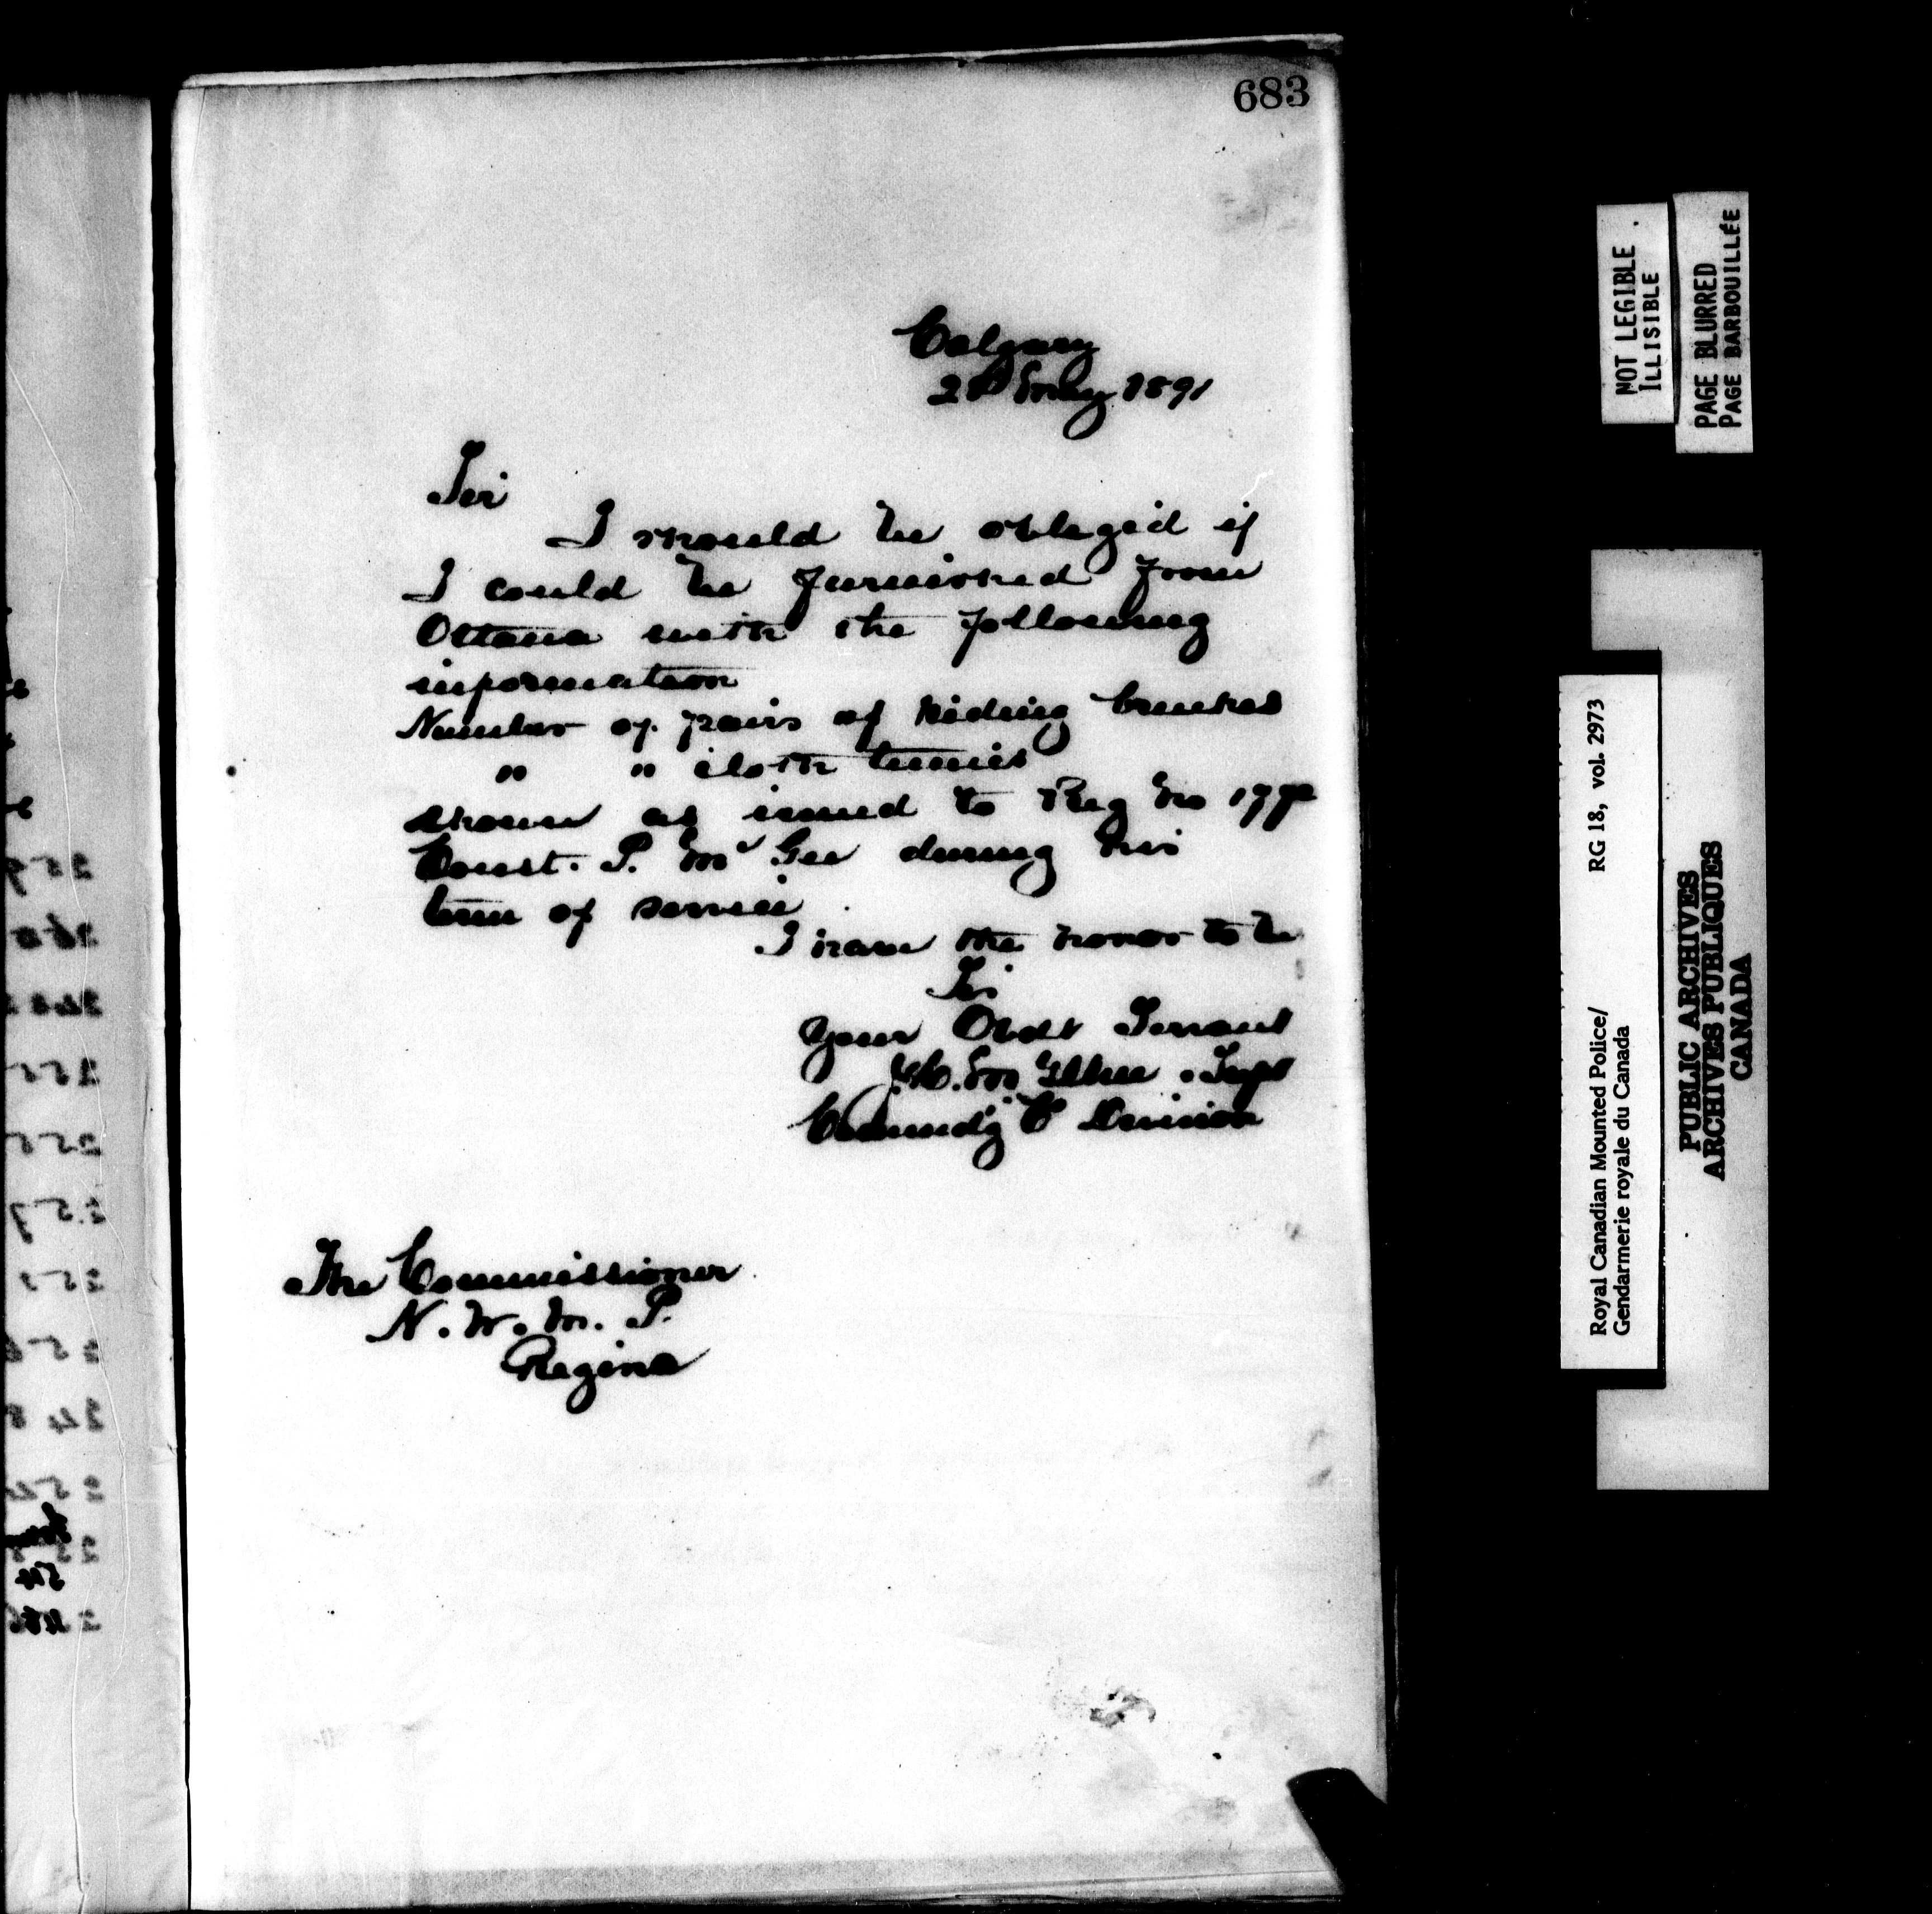 683
Calgary
May 1891
Sir
I should be obliged if
I could be furnished from
Ottawa with the following
information
Number of pairs of Riding breeches
" " cloth tunics
shown as issued to Reg No
Const. P. McGee during his
term of service
I have the honor to be
Sir
Your Obdt Servant
Supt
Commdg Division
The Commissioner
N. W. M. P.
Regina
NOT LEGIBLE
ILLISIBLE
PAGE BLURRED
PAGE BARBOUILLÉE
Royal Canadian Mounted Police/ RG 18, vol. 2973
Gendarmerie royale du Canada
PUBLIC ARCHIVES
ARCHIVES PUBLIQUES
CANADA